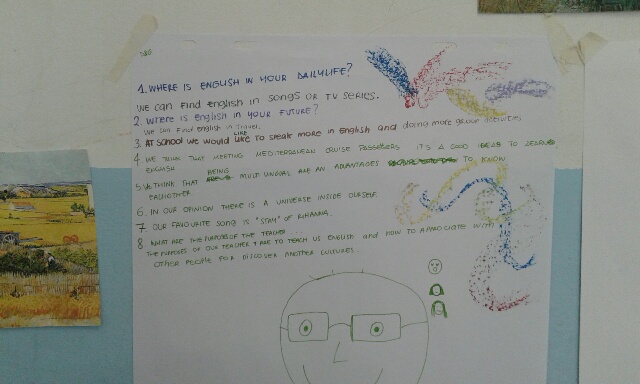 1. WHERE IS ENGLISH IN YOUR DAILYLIFE?
WE can find english in songs or TV series.
2. Where is english in YOUR FUTURE?
We can find english in travel.
3 At school we would LIKE to speak more in English and doing more group activities
4 WE THINK THAT MEETING MEDITERRANEAN CRUISE PASSENGERS IT'S A GOOD IDEAS TO LEARN
ENGLISH
5 WE THINK THAT BEING MULTILINGUAL ARE AN ADVANTAGES TO KNOW
EACHOTHER
6. IN OUR OPINION THERE IS A UNIVERSE INSIDE OURSELF.
7 OUR FAVOURITE SONG IS "STAY" OF RIHANNA.
8 WHAT ARE THE PURPOSES OF THE TEACHER...
THE PURPOSES OF OUR TEACHER ARE TO TEACH US ENGLISH and HOW TO APPROCIATE WITH
OTHER PEOPLE FOR DISCOVER ANOTHER CULTURES..